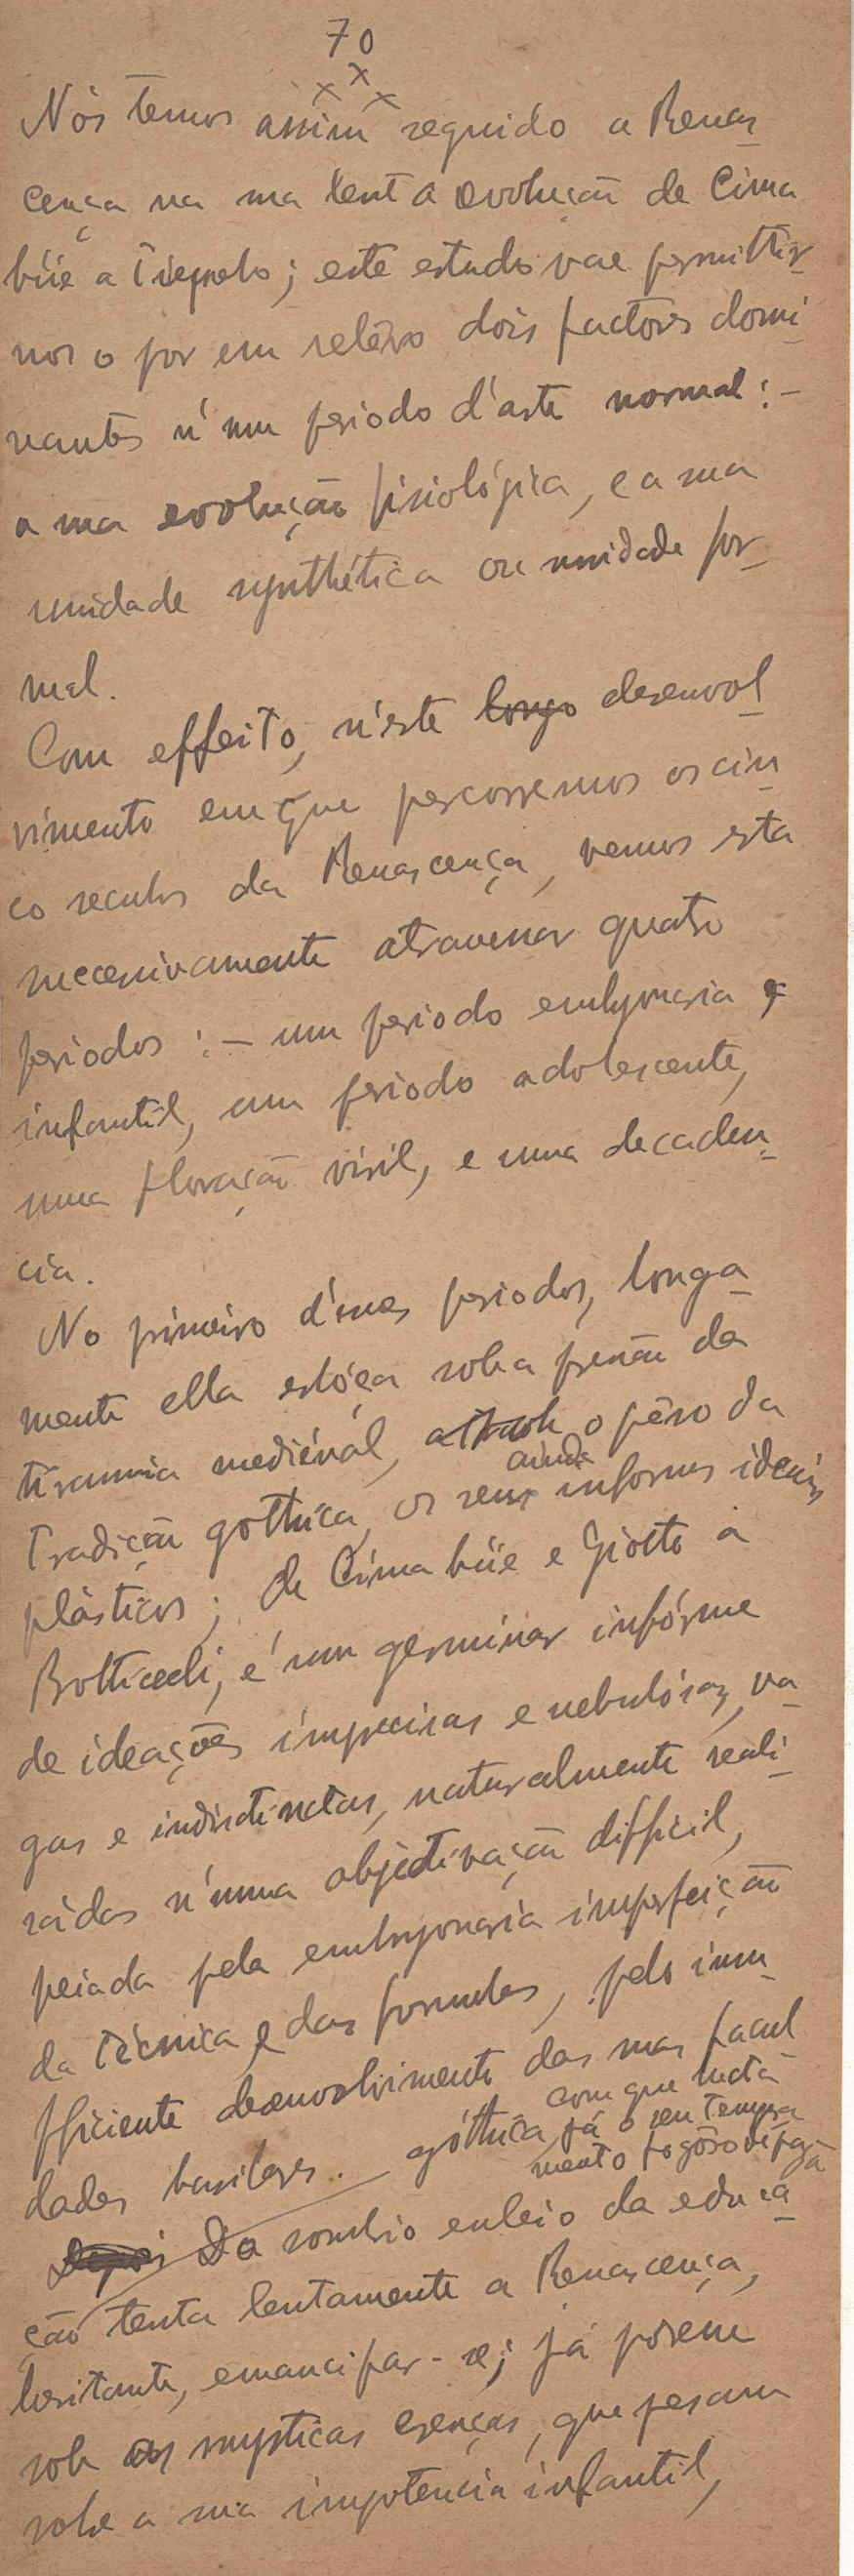 70
x x x
Nós temos assim seguido a Renas
cença na sua lenta evolução de Cima
búe a Tiepolo; este estudo vae permittir
nos o por em relêvo dois factores domi
nantes n'um periodo d'arte normal: –
a sua evolução fisiológica, e a sua
unidade synthética ou unidade for
mal.
Com effeito, n'este longo desenvol
vimento em que percorremos os cin
co seculos da Renascença, vemos esta
successivamente atravessar quatro
periodos: – um periodo embryonario e
infantil, um periodo adolescente,
uma floração viril, e uma decaden
cia.
No primeiro d'esses periodos, longa
mente ella esbóça sob a pressão da
tirannia mediéval, o pêso da
ainda
Tradição gothica, os seus informes ideaes
plàsticos; de Cimabúe e Giotto a
Botticeli, é um germinar infórme
de ideações imprecisas e nebulósas, va
gas e indistinctas, naturalmente reali
sádas n'uma objectivação difficil,
peiada pela embryonaria imperfeição
da Técnica e das formulas, pelo insu
fficiente desenvolvimento das suas facul
dades basilares. góthica, com que lucta
já o seu tempera
mento fogôso
Depois Do sombrio enleio da educa
ção tenta lentamente a Renascença,
hesitante, emancipar-se; já porém
sob as mysticas crenças, que pesam
sobre a sua impotencia infantil,